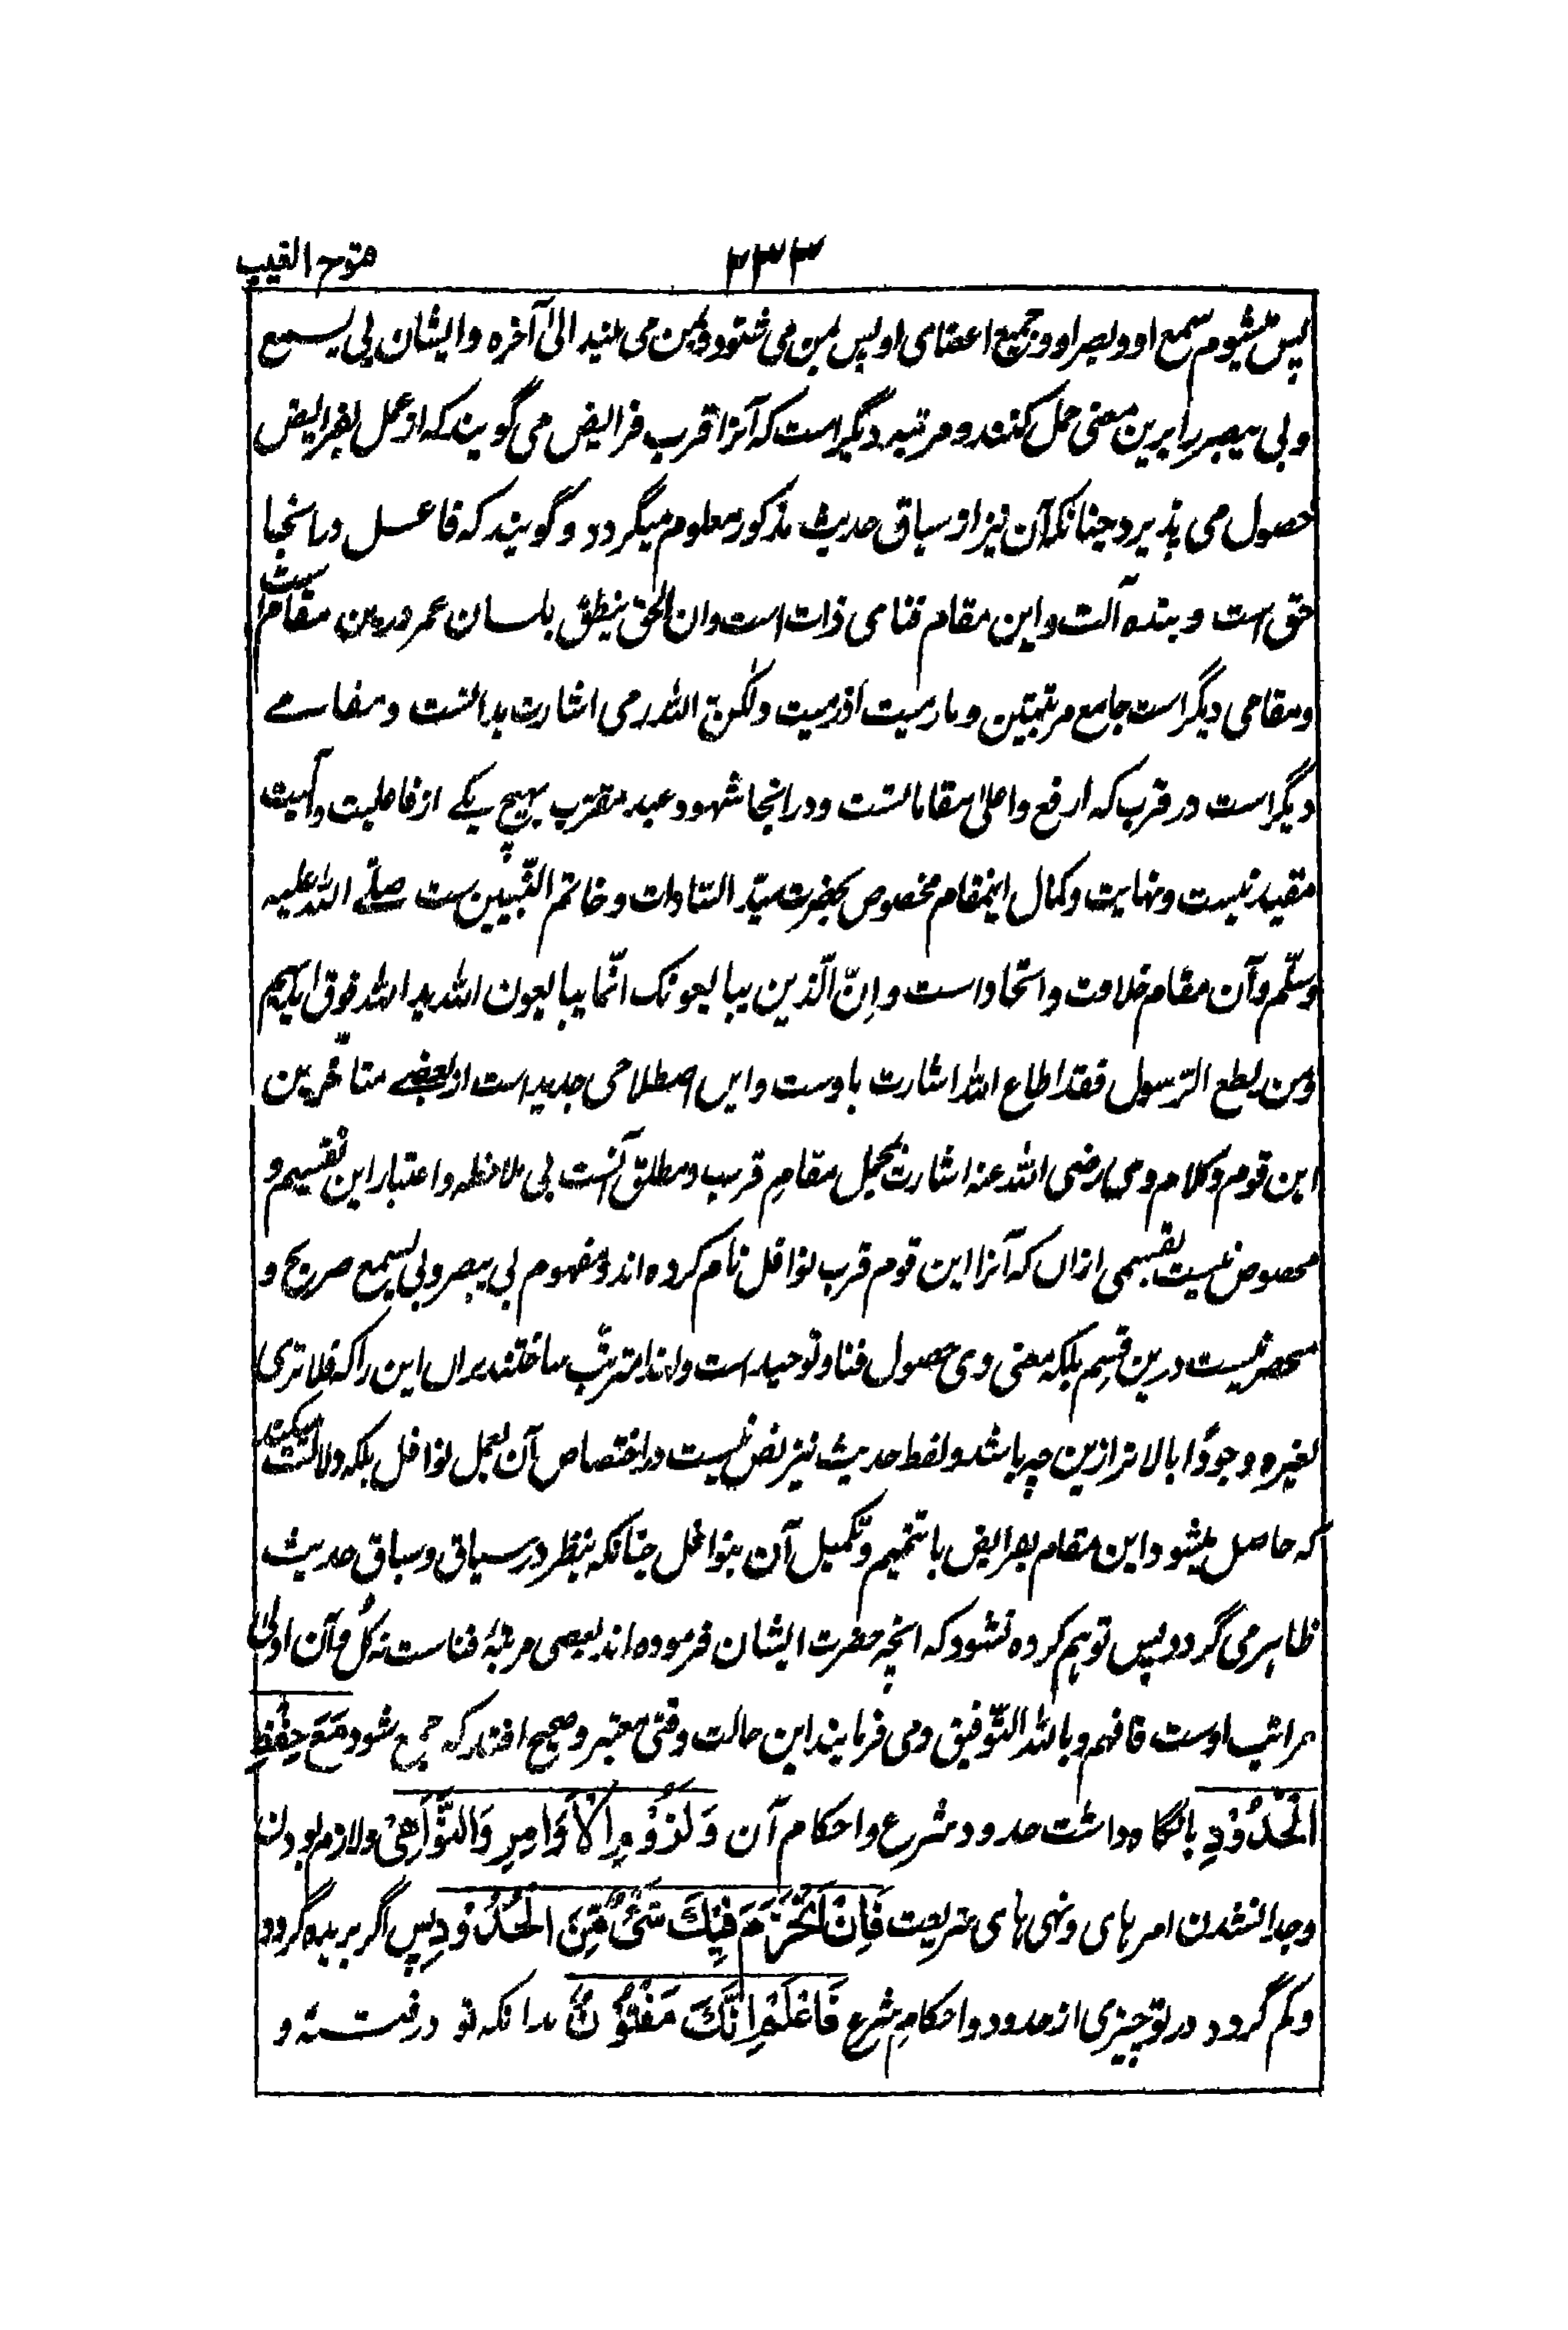 ۳۳۳
فتوح الغیب
پس میشوم سمع او و بصر او و جمیع اعضای او پس بمن می شنود و بمن می بیند الی آخره و ایشان بی یسمع
و بی یبصر را برین معنی حمل کنند و مرتبه دیگر است که آنرا قرب فرایض می گویند که از عمل بفرایض
حصول می پذیرد چنانکه آن نیز از سیاق حدیث مذکور معلوم میگردد و گویند که فاعل در اینجا
حق است و بنده آلت و این مقام فنای ذات است و ان الحق ینطق بلسان عمر درین مقام است
و مقامی دیگر است جامع مرتبتین و ما رمیت اذ رمیت ولکن الله رمی اشارت بدانست و مقامے
دیگر است در قرب که ارفع و اعلی مقاماتست و در اینجا شهود عبد مقرب بهیچ یکے از فاعلیت و آلیت
مقید نیست و نهایت و کمال اینمقام مخصوص بحضرت سیّد السّادات و خاتم النّبیّین ست صلّے الله علیه
وسلّم و آن مقام خلافت و اتحاد است و اِنّ الّذین یبایعونک انّما یبایعون الله ید الله فوق ایدیهم
و من یطع الرّسول فقد اطاع الله اشارت باوست و این اصطلاحی جدید است از بعضے متأخرین
این قوم و کلام وی رضی الله عنه اشارت بمجمل مقامِ قرب و مطلق آنست بی ملاحظه و اعتبار این تقسیم و
مخصوص نیست بقسمی ازان که آنرا این قوم قرب نوافل نام کرده اند و مفهوم بی یبصر و بی یسمع صریح و
منحصر نیست درین قسِم بلکه معنی وی حصول فنا و توحید است و لهذا مترتّب ساختند بران این را که فلا تری
لغیره وجودًا بالاتر ازین چه باشد و لفظ حدیث نیز نص نیست در اختصاص آن بعمل نوافل بلکه دلالت میکند
که حاصل میشود این مقام بفرایض با تتمیم و تکمیل آن بنوافل چنانکه بنظر در سیاق و سباق حدیث
ظاهر می گردد پس توهم کرده نشود که انچه حضرت ایشان فرموده اند بعضی مرتبهٔ فناست نه کُل و آن اولی
مراتب اوست فافهم و بالله التّوفیق و می فرمایند این حالت وقتی معتبر و صحیح افتد که جمع شود مَعَ حِفْظِ
الْحُدُوْدِ با نگاه داشت حدود شرع و احکام آن وَلُزُوْمِ الْاَوَامِرِ وَالنَّوَاهِیْ و لازم بودن
و جدا نشدن امر های و نهی های شریعت فَاِنِ انْخَرَمَ فِیْكَ شَیْءٌ مِّنَ الْحُدُوْدِ پس اگر بریده گردد
و کم گردد در تو چیزی از حدود و احکامِ شرع فَاعْلَمْ اِنَّكَ مَفْتُوْنٌ بدانکه تو در فتنه و